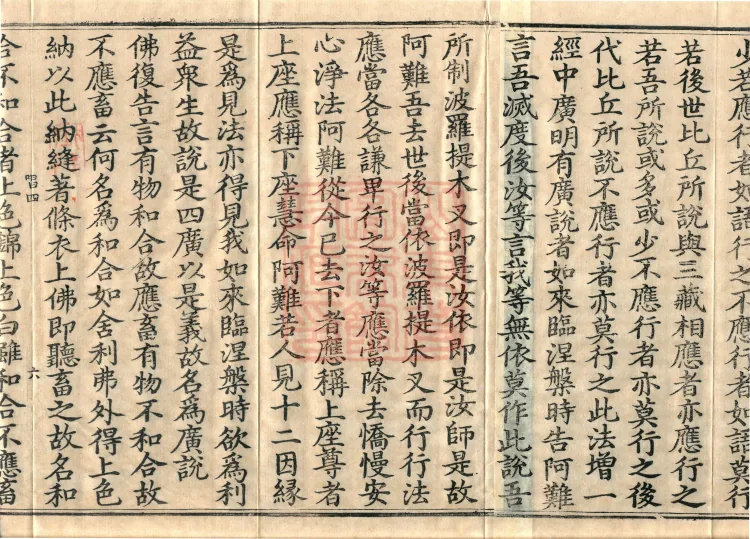 少若應行者如語行之不應行者如語莫行
若後世比丘所說與三藏相應者亦應行之
若吾所說或多或少不應行者亦莫行之後
代比丘所說不應行者亦莫行之此法增一
經中廣明有廣說者如來臨涅槃時告阿難
言吾滅度後汝等言我等無依莫作此說吾
所制波羅提木叉即是汝依即是汝師是故
阿難吾去世後當依波羅提木叉而行行法
應當各各謙卑行之汝等應當除去憍慢安
心淨法阿難從今已去下者應稱上座尊者
上座應稱下座慧命阿難若人見十二因緣
是為見法亦得見我如來臨涅槃時欲為利
益衆生故說是四廣以是義故名為廣說
佛復告言有物和合故應畜有物不和合故
不應畜云何名為和合如舍利弗外得上色
納以此納縫著條衣上佛即聽畜之故名和
唱四
六
合不和合者上色歸上色白雖和合不應畜